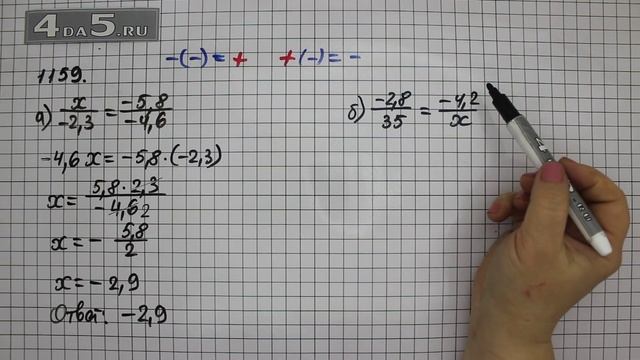 4DA5.RU
-(-) = + +(-) = -
1159.
а) x/-2,3 = -5,8/-4,6
-4,6 x = -5,8 · (-2,3)
x = 5,8 · 2,3/-4,6 2
x = - 5,8/2
x = - 2,9
Ответ: -2,9
б) -2,8/35 = -4,2/x